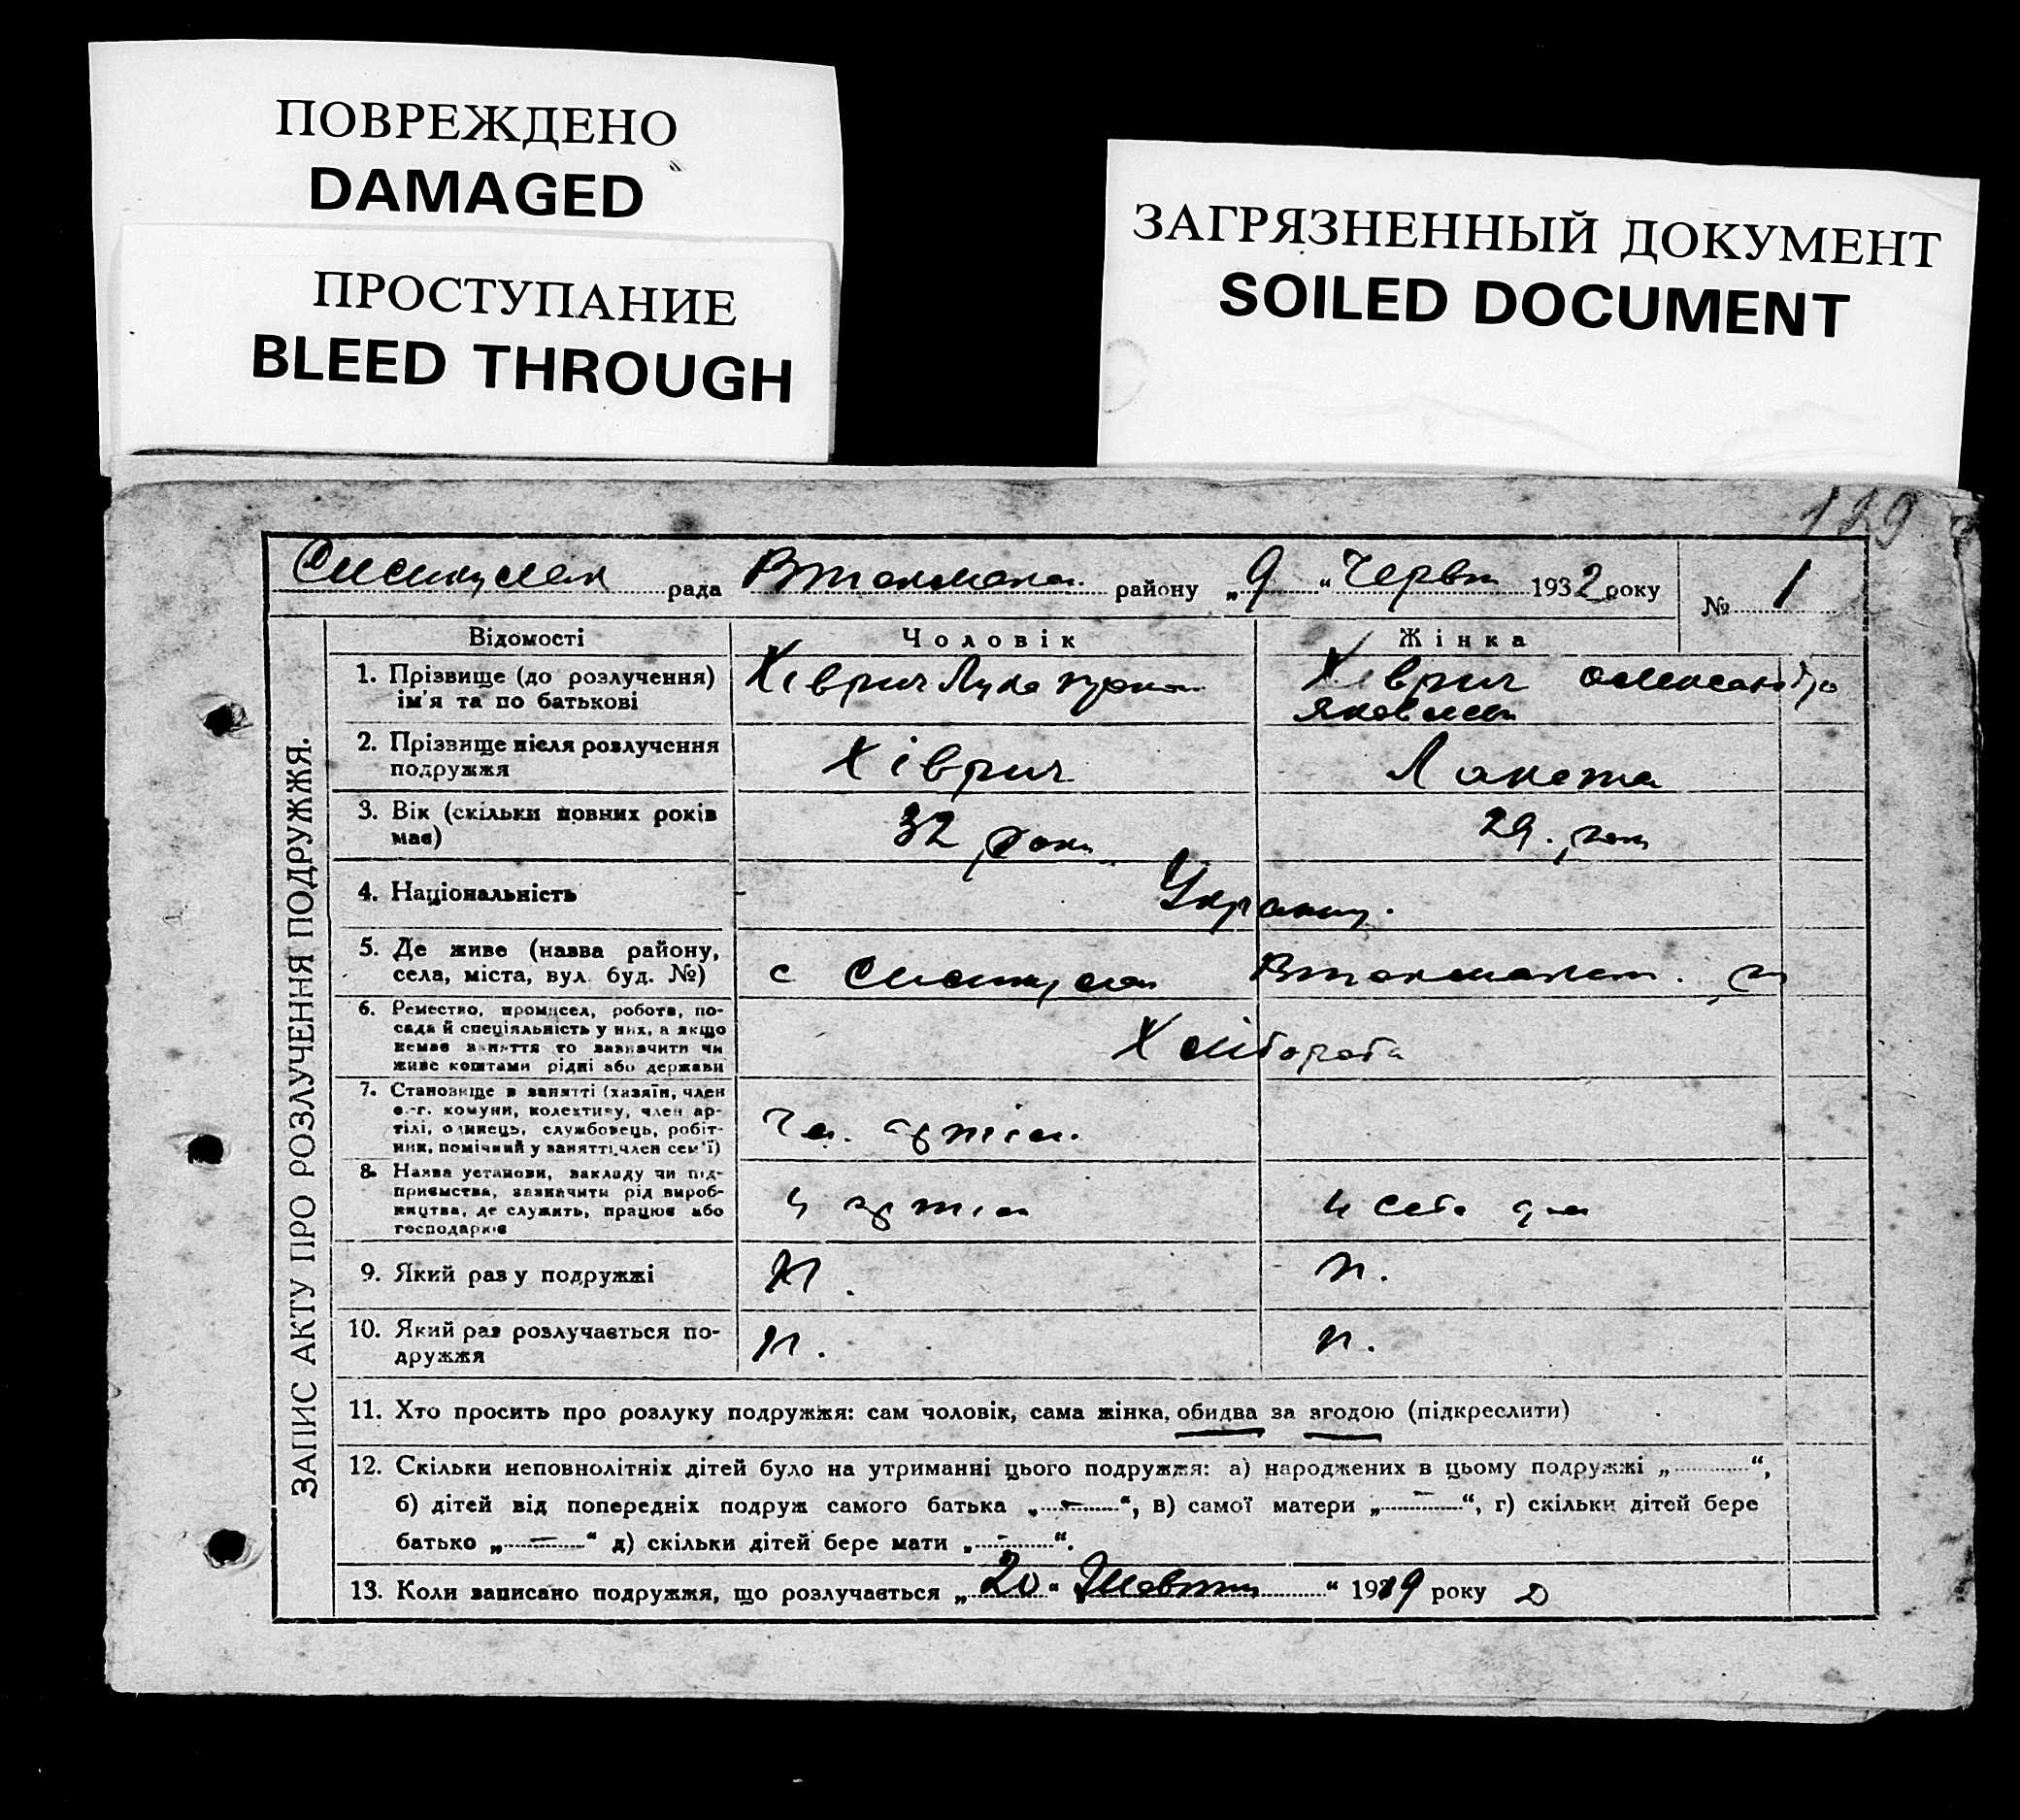 ПОВРЕЖДЕНО
DAMAGED
ПРОСТУПАНИЕ
BLEED THROUGH
ЗАГРЯЗНЕННЫЙ ДОКУМЕНТ
SOILED DOCUMENT
129
рада району „9“ Червн 1932 року № 1
ЗАПИС АКТУ ПРО РОЗЛУЧЕННЯ ПОДРУЖЖЯ.
Відомості Чоловік Жінка
1. Прізвище (до розлучення) Хіврич Лука Хіврич Олександра
ім'я та по батькові Яковлев
2. Прізвище після розлучення Хіврич
подружжя
3. Вік (скільки повних років 32 роки 29. рок
має)
4. Національність
5. Де живе (назва району,
села, міста, вул. буд. №) с
6. Ремество, промисел, робота, по-
сада й спеціяльність у них, а якщо
немає заняття то зазначити чи
живе коштами рідні або держави
Хлібороб
7. Становище в занятті (хазяїн, член
с.-г. комуни, колективу, член ар-
тілі, одинець, службовець, робіт-
ник, помічний у занятті член сем'ї)
Чл. артіл.
8. Назва установи, закладу чи під-
приємства, зазначити рід вироб-
ництва, де служить, працює або
господарює
9. Який раз у подружжі п. п.
10. Який раз розлучається по- п. п.
дружжя
11. Хто просить про розлуку подружжя: сам чоловік, сама жінка, обидва за згодою (підкреслити)
12. Скільки неповнолітніх дітей було на утриманні цього подружжя: а) народжених в цьому подружжі „ “,
б) дітей від попередніх подруж самого батька „—“, в) самої матери „—“, г) скільки дітей бере
батько „—“ д) скільки дітей бере мати „—“.
13. Коли записано подружжя, що розлучається „20“ Жовтн “ 1919 року